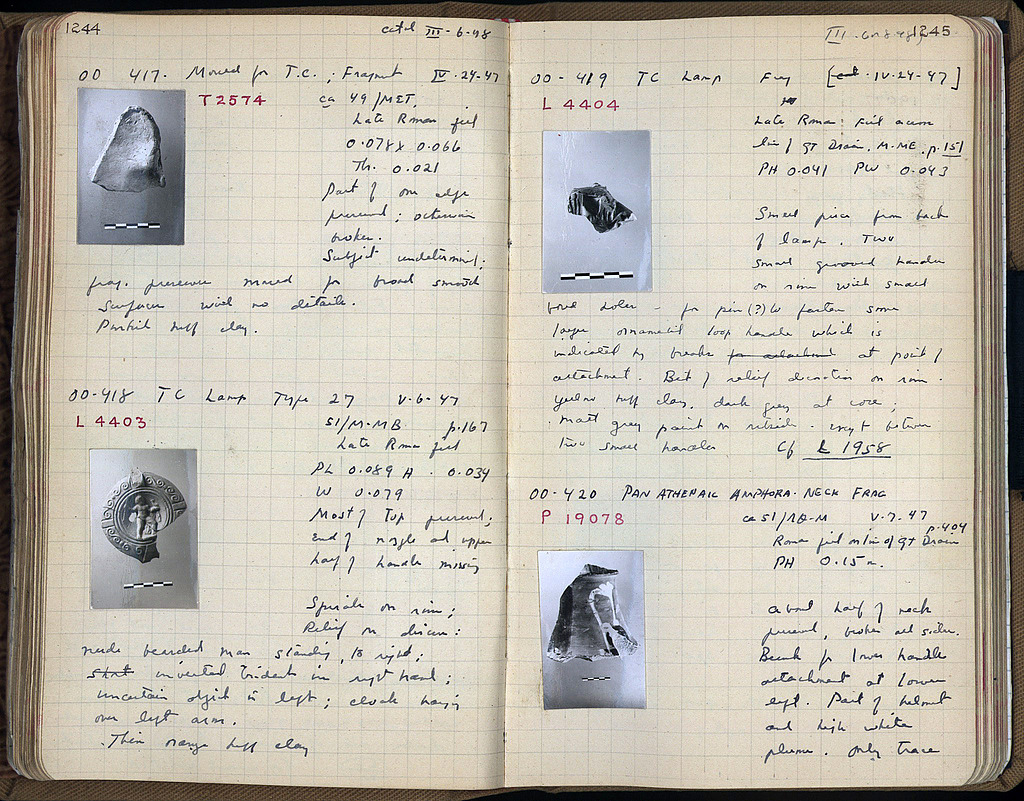 1244
catal III-6-48
OO 417. Mould for T.C.; Fragment IV-24-47
T 2574
ca 49/MET.
Late Roman fill
0.078 x 0.066
Th. 0.021
Part of one edge
preserved; otherwise
broken.
Subject undetermined;
frag. preserves mould for broad smooth
surfaces with no details.
Pinkish buff clay.
OO-418 TC Lamp Type 27 V-6-47
L 4403
51/M-MB p.167
Late Roman fill
PL 0.089 H. 0.034
W 0.079
Most of Top preserved;
End of nozzle and upper
half of handle missing
Spirals on rim;
Relief on discus:
nude bearded man standing, to right;
inverted trident in right hand;
uncertain object in left; cloak hangs
over left arm.
Thin orange buff clay
1245
III
OO-419 TC Lamp Frag IV-24-47]
L 4404
Late Roman fill across
line of GT Drain, M-ME, p.151
PH 0.041 PW 0.043
Small piece from back
of lamp. Two
small grooved handles
on rim with small
holes - for pin (?) to fasten some
large ornamental loop handle which is
indicated by breaks for attachment at point of
attachment. Bit of relief decoration on rim.
Yellow buff clay, dark grey at core;
matt grey paint on outside - except between
two small handles Cf L 1958
OO-420 PANATHENAIC AMPHORA-NECK FRAG
P 19078
ca 51/ V-7-47
p.404
Roman fill on line of GT Drain
PH 0.15 m.
About half of neck
preserved, broken all sides.
Break for lower handle
attachment at lower
left. Part of helmet
and high white
plume. Only trace